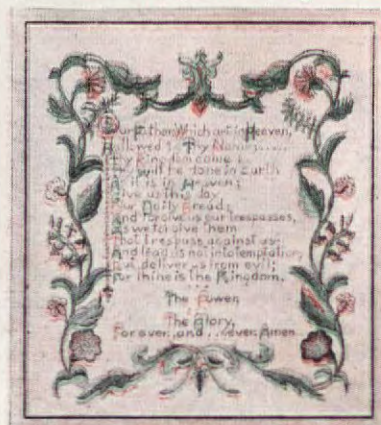 Our Father Which art in Heaven,
Hallowed be Thy Name......
Thy Kingdom come :
Thy will be done in Earth
As it is in Heaven;
Give us this day
Our Daily Bread;
And forgive us our trespasses,
As we forgive them
That trespass against us:
And lead us not into temptation,
But deliver us from evil;
For thine is the Kingdom,
The Power,
The Glory,
For ever and .. ever. Amen.